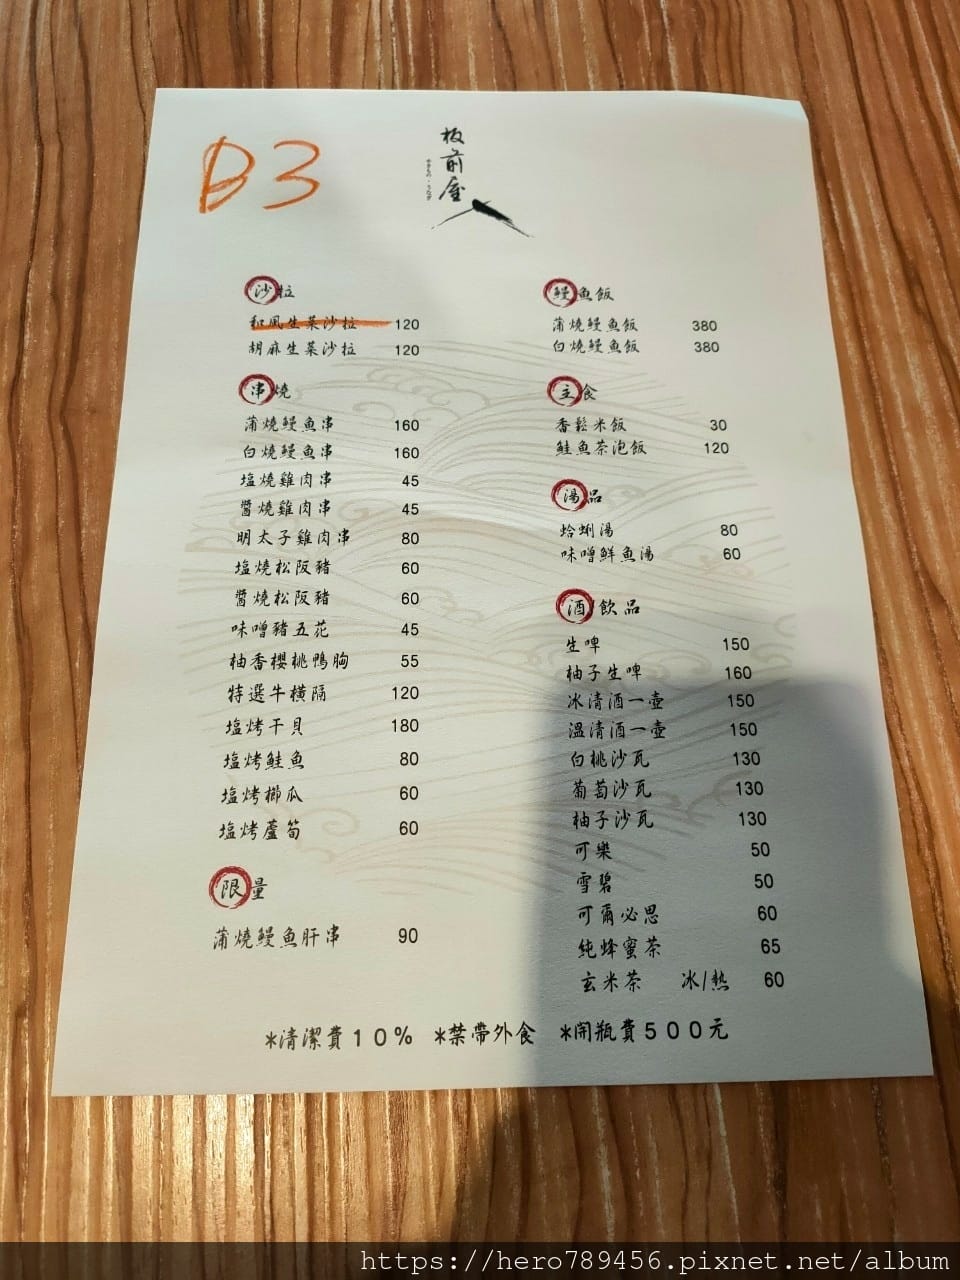 B3
板前屋
沙拉
和風生菜沙拉 120
胡麻生菜沙拉 120
串燒
蒲燒鰻魚串 160
白燒鰻魚串 160
塩燒雞肉串 45
醬燒雞肉串 45
明太子雞肉串 80
塩燒松阪豬 60
醬燒松阪豬 60
味噌豬五花 45
柚香櫻桃鴨胸 55
特選牛橫隔 120
塩烤干貝 180
塩烤鮭魚 80
塩烤櫛瓜 60
塩烤蘆筍 60
限量
蒲燒鰻魚肝串 90
鰻魚飯
蒲燒鰻魚飯 380
白燒鰻魚飯 380
主食
香鬆米飯 30
鮭魚茶泡飯 120
湯品
蛤蜊湯 80
味噌鮮魚湯 60
酒/飲品
生啤 150
柚子生啤 160
冰清酒一壺 150
溫清酒一壺 150
白桃沙瓦 130
葡萄沙瓦 130
柚子沙瓦 130
可樂 50
雪碧 50
可爾必思 60
純蜂蜜茶 65
玄米茶 冰/熱 60
*清潔費10% *禁帶外食 *開瓶費500元
https://hero789456.pixnet.net/album